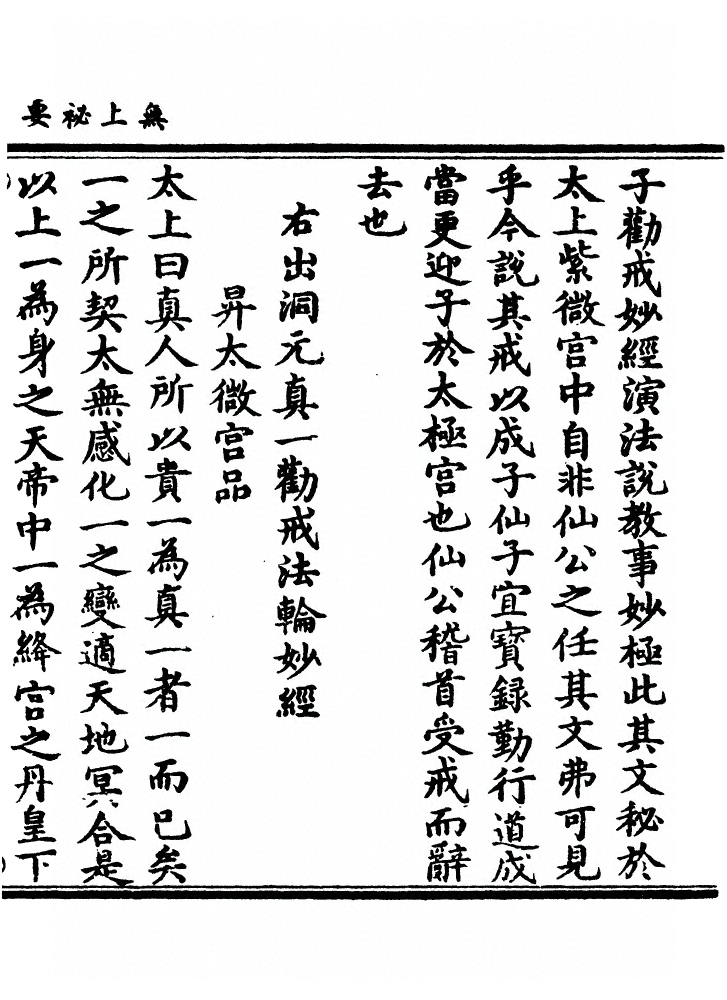 無上祕要
子勸戒妙經演法說教事妙極此其文秘於
太上紫微宮中自非仙公之任其文弗可見
乎今說其戒以成子仙子宜寶録勤行道成
當更迎子於太極宮也仙公稽首受戒而辭
去也
右出洞元真一勸戒法輪妙經
昇太微宮品
太上曰真人所以貴一為真一者一而已矣
一之所契太無感化一之變適天地冥合是
以上一為身之天帝中一為絳宮之丹皇下